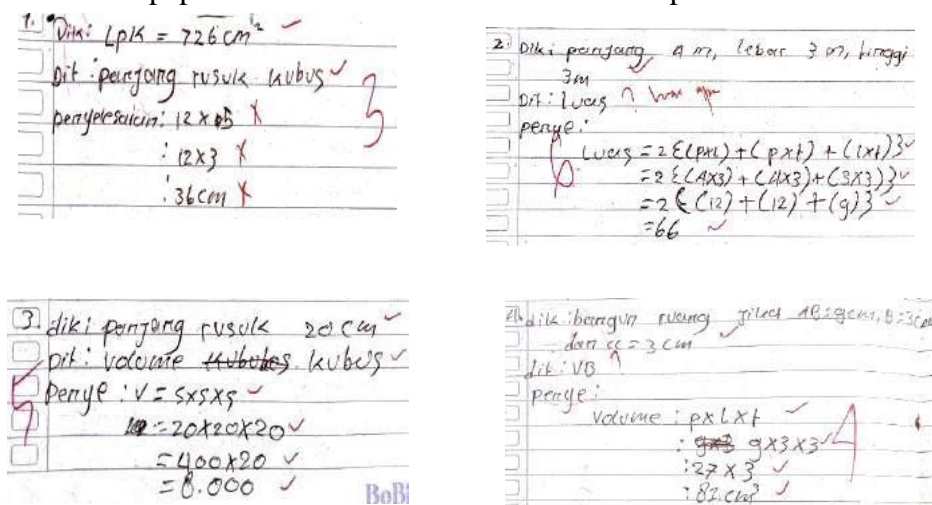 1. Dik: Lpk = 726 cm²
Dit : panjang rusuk kubus
3
penyelesaian: 12 x
: 12x3
: 36 cm
2. Dik: panjang 4 m, lebar 3 m, tinggi
3m
Dit: luas ?
penye:
Luas = 2{(pxl)+(pxt)+(lxt)}
= 2{(4x3)+(4x3)+(3x3)}
= 2{(12)+(12)+(9)}
=66
6
3. dik: panjang rusuk 20 cm
Dit: volume kubus
penye : V = sxsxs
= 20x20x20
= 400x20
= 8.000
5
BoBi
dik: bangun ruang AB=9cm, B=3cm
dan = 3 cm
dit: VB
penye:
volume : pxLxt
: 9x3x3
: 27 x 3
: 81 cm³
4